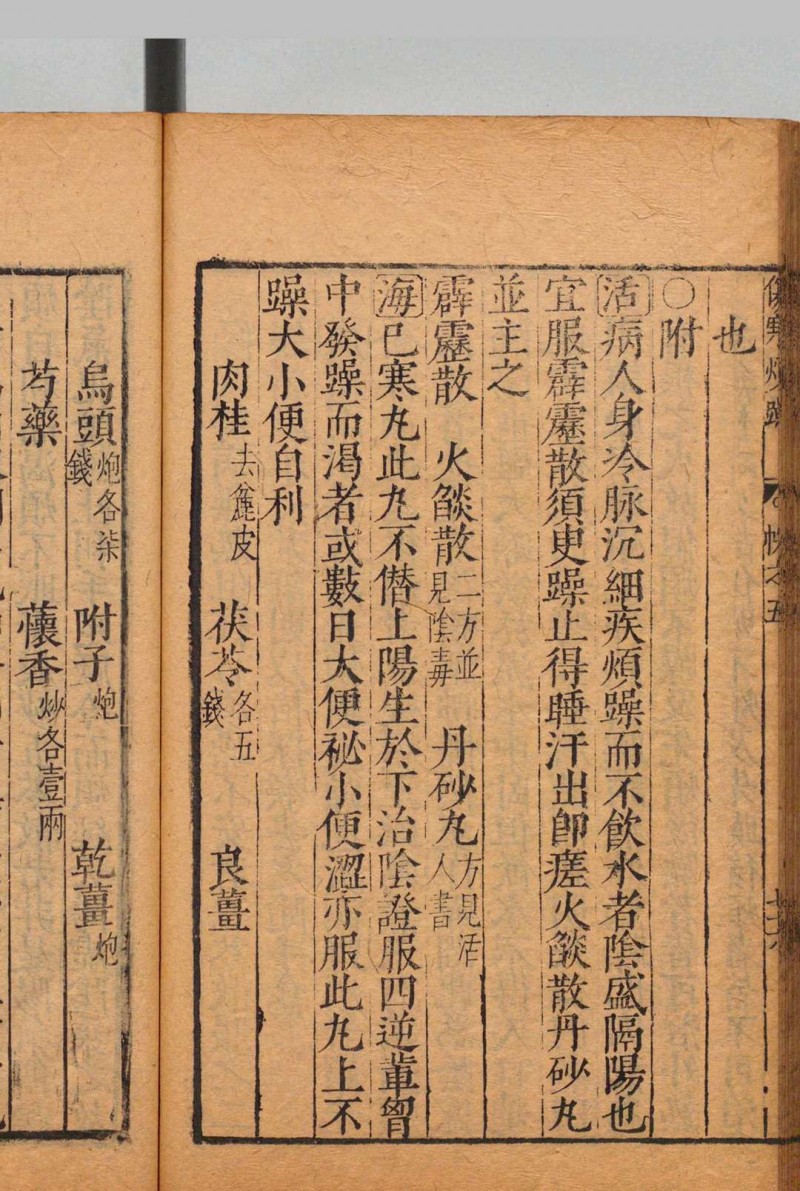 也
○附
活病人身冷脉沉細疾煩躁而不飲水者陰盛隔陽也
宜服霹靂散須臾躁止得睡汗出即瘥火燄散丹砂丸
並主之
霹靂散 火燄散二方並見陰毒 丹砂丸方見活人書
海已寒丸此丸不僭上陽生於下治陰證服四逆輩胷
中發躁而渴者或數日大便祕小便澀亦服此丸上不
躁大小便自利
肉桂去麄皮 茯苓各五錢 良薑
烏頭炮各柒錢 附子炮 乾薑炮
芍藥 蘹香炒各壹兩